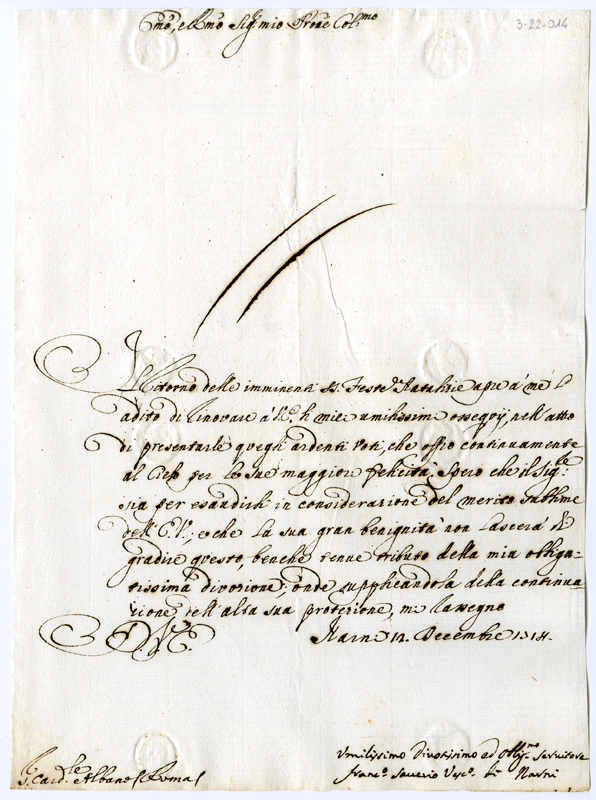 Emo, e Rmo Sig.r mio Prone Colmo
3-22-014
Il Ritorno delle imminenti SS. Feste Natalizie apre à me l'
adito di rinovare à V.E. li miei umilissimi ossequij nell'atto
di presentarle quegli ardenti Voti, che offro continuamente
al Cielo per le sue maggiori felicità. Spero che il Sig.re
sia per esaudirli in considerazione del merito sublime
dell'E.V., e che la sua gran benignità non lascerà di
gradire questo, benche tenue tributo della mia obliga-
tissima divozione; onde supplicandola della continua-
zione dell'alta sua protezione, mi rassegno
D. V. E.
Narni 12. Decembre 1714.
Umilissimo Divotissimo ed Obligmo Servitore
Franc.o Saverio Vesc.o di Narni
S. Card.le Albano (Roma)